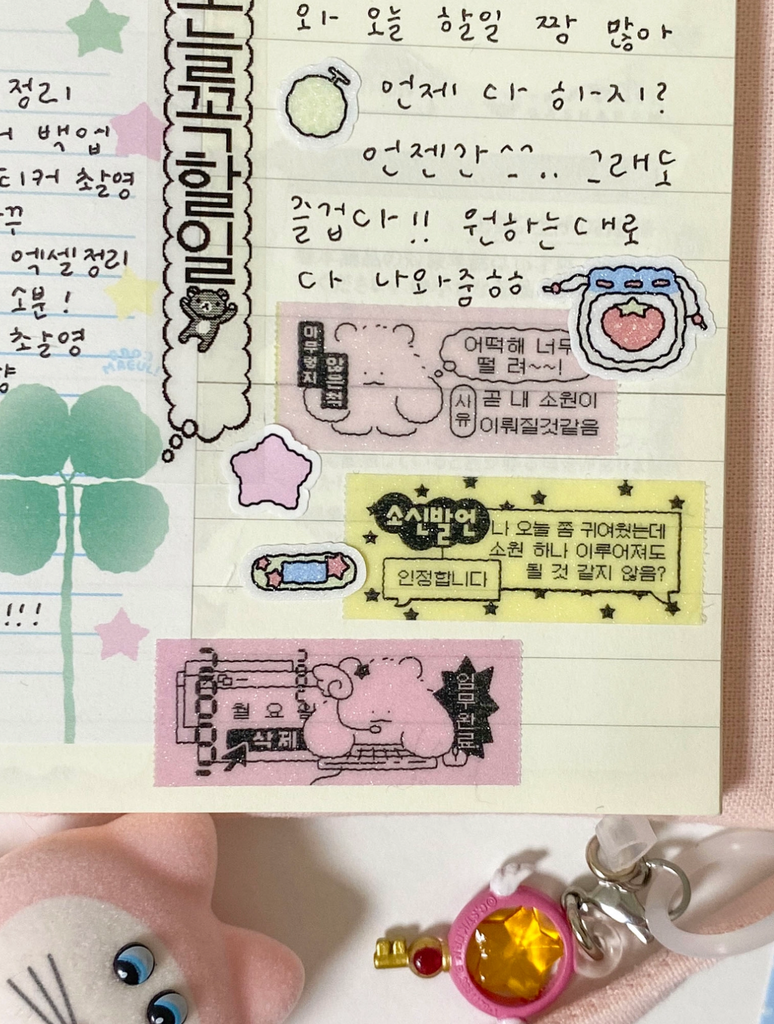 정리
백업
촬영
엑셀정리
소분!
촬영
!!!
오늘꼭할일
와 오늘 할일 짱 많아
언제 다 하지?
언젠간 ^^.. 그래도
즐겁다!! 원하는대로
다 나와줌ㅎㅎ
아무렇지
않은척
어떡해 너무
떨려~~!
사유
곧 내 소원이
이뤄질것같음
소신발언
나 오늘 쫌 귀여웠는데
소원 하나 이루어져도
될 것 같지 않음?
인정합니다
월요일
삭제
임무완료